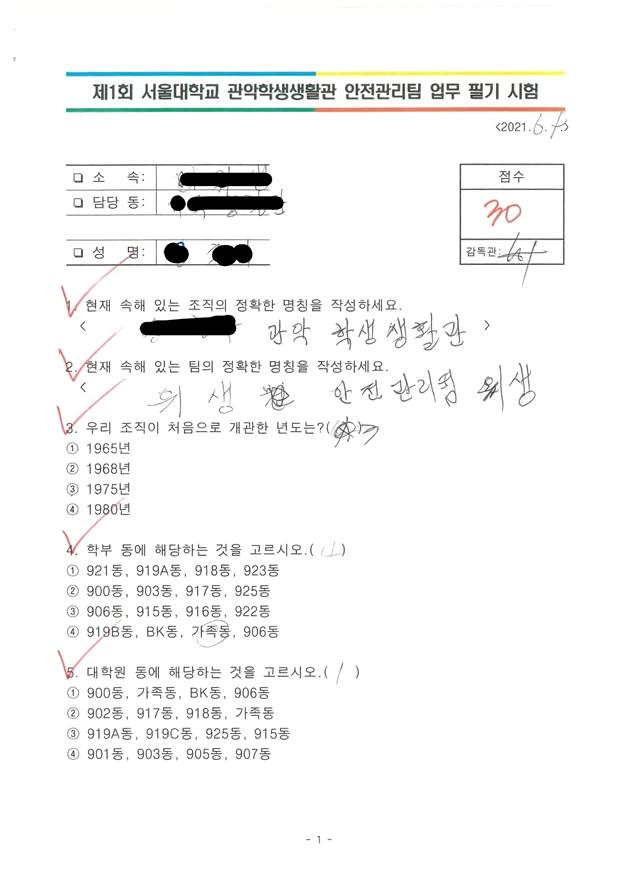 제1회 서울대학교 관악학생생활관 안전관리팀 업무 필기 시험
<2021.6.>
❏ 소 속:
❏ 담당 동:
❏ 성 명:
점수
30
감독관:
1. 현재 속해 있는 조직의 정확한 명칭을 작성하세요.
< 관악 학생생활관 >
2. 현재 속해 있는 팀의 정확한 명칭을 작성하세요.
< 위생 안전관리팀 위생
3. 우리 조직이 처음으로 개관한 년도는?( )
① 1965년
② 1968년
③ 1975년
④ 1980년
4. 학부 동에 해당하는 것을 고르시오.( )
① 921동, 919A동, 918동, 923동
② 900동, 903동, 917동, 925동
③ 906동, 915동, 916동, 922동
④ 919B동, BK동, 가족동, 906동
5. 대학원 동에 해당하는 것을 고르시오.( 1 )
① 900동, 가족동, BK동, 906동
② 902동, 917동, 918동, 가족동
③ 919A동, 919C동, 925동, 915동
④ 901동, 903동, 905동, 907동
- 1 -